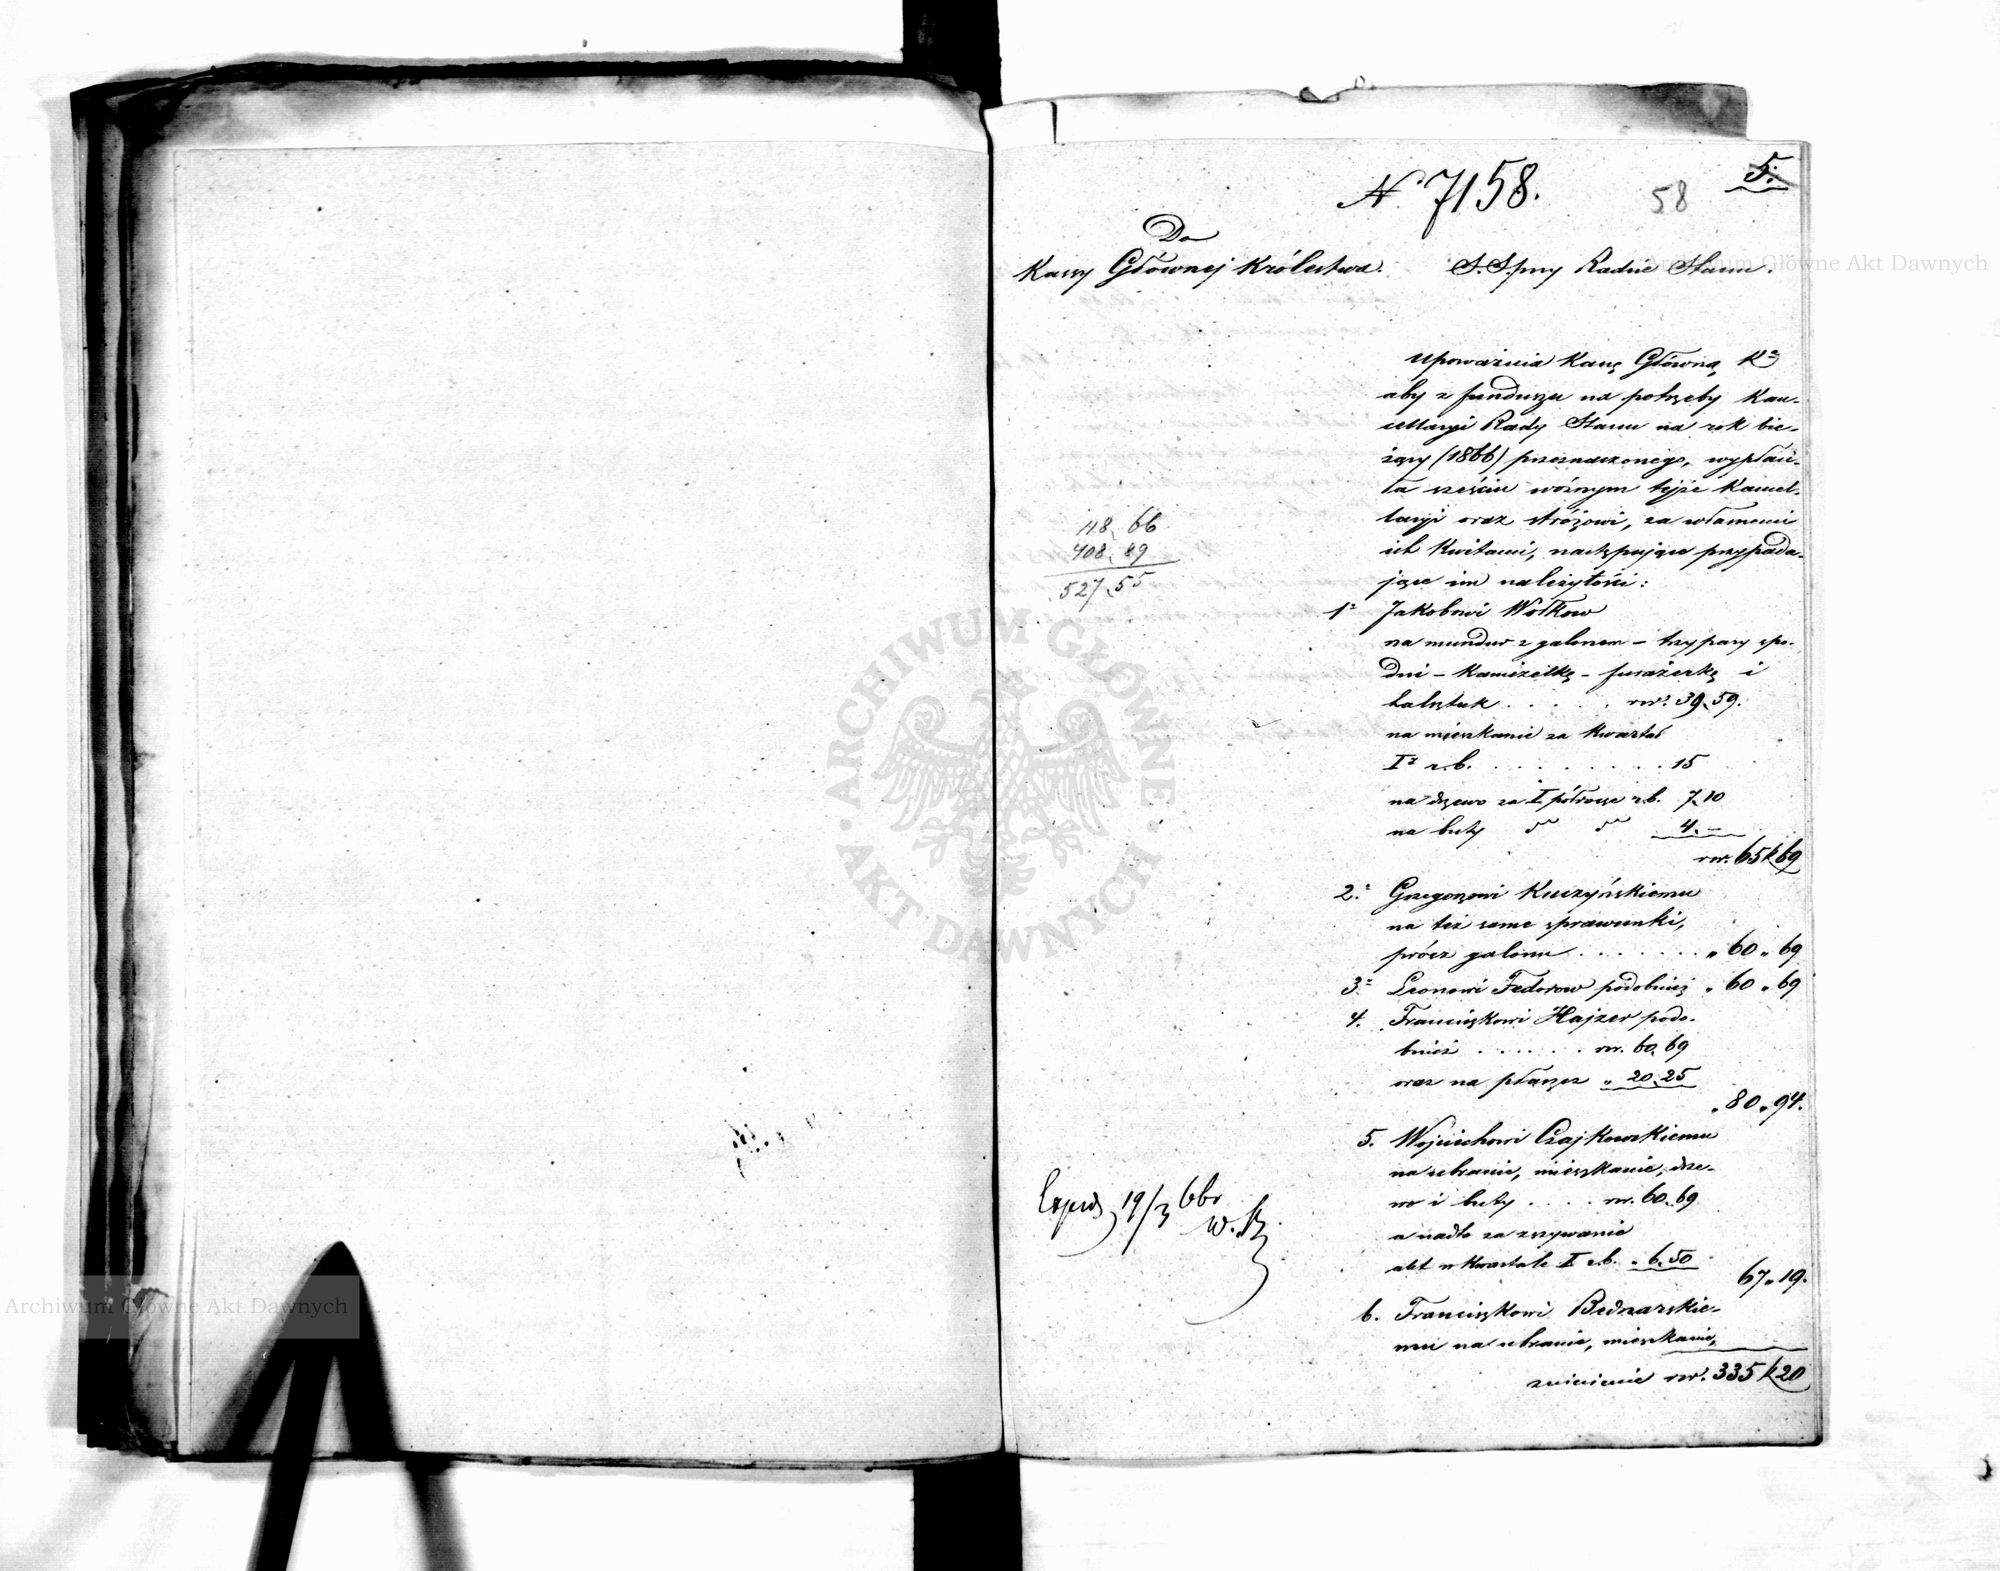 N. 7158.
58
5.
Do
Kassy Głównej Królestwa.
S. S. przy Radzie Stanu.
Upoważnia Kassę Główną K
aby z funduszu na potrzeby Kan-
cellaryi Rady Stanu na rok bie-
żący (1866) przeznaczonego, wypłaci-
ła sześciu woźnym tejże Kancel-
laryi oraz stróżowi, za własnemi
ich kwitami, następujące przypada-
jące im należytości:
118. 66
408. 89
527. 55
1. Jakobowi Wołkow
na mundur z galonem - trzy pary spo-
dni - kamizelkę - furażerkę i
halsztuk . . . . . rsr. 39. 59.
na mieszkanie za kwartał
I r. b. . . . . . . . . 15
na drzewo za I półrocze r. b. 7. 10
na buty do do 4. -
rsr. 65 k 69
2. Grzegorzowi Kuczyńskiemu
na też same sprawunki,
prócz galonu . . . . . . . „ 60 „ 69
3. Leonowi Fedorow podobnież „ 60 „ 69
4. Franciszkowi Hajzer podo-
bnież . . . . . . rsr. 60. 69
oraz na płaszcz „ 20. 25
„ 80 „ 94.
5. Wojciechowi Czajkowskiemu
na ubranie, mieszkanie, drze-
wo i buty . . . . rsr. 60. 69
a nadto za zszywanie
akt w kwartale I r. b. „ 6. 50
67 „ 19.
6. Franciszkowi Bednarskie-
mu na ubranie, mieszkanie,
zniesienie rsr. 335 k 20
Exped 19/3 66r
Archiwum Główne Akt Dawnych
ARCHIWUM GŁÓWNE AKT DAWNYCH
Archiwum Główne Akt Dawnych